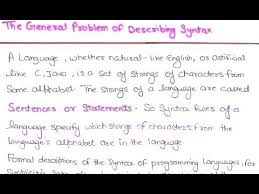 The General Problem of Describing Syntax
A Language, whether natural like English, or Artificial
like C, Java, is a Set of Strangs of characters from
Some alphabet. The strangs of a language are called
Sentences or Statements - So Syntax Rules of a
language specify which strangs of characters from the
language's alphabet are in the language.
Formal descriptions of the Syntax of programming languages, for